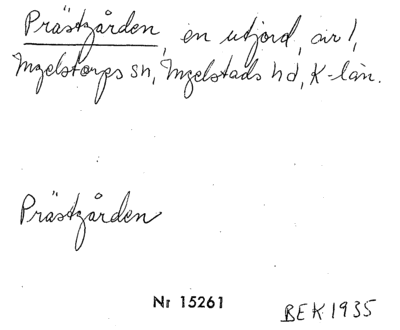 Prästgården, en utjord, air 1,
Ingelstorps sn, Ingelstads hd, K-län.
Prästgården
Nr 15261
BEK 1935